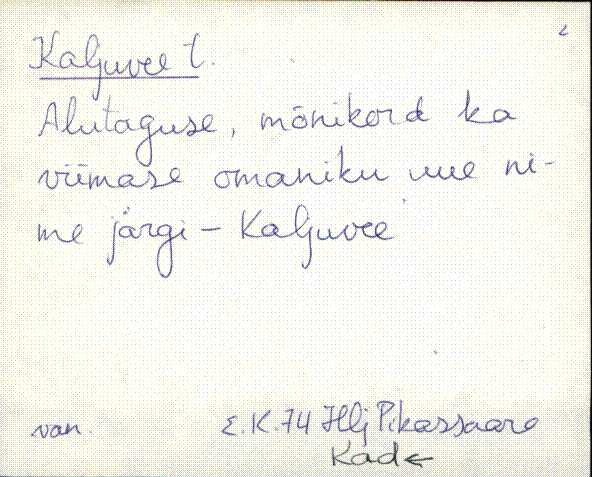 2
Kaljuvee t.
Alutaguse, mõnikord ka
viimase omaniku uue ni-
me järgi – Kaljuvee
van. E.K. 74 Hlj Pikassaare
Kad ←